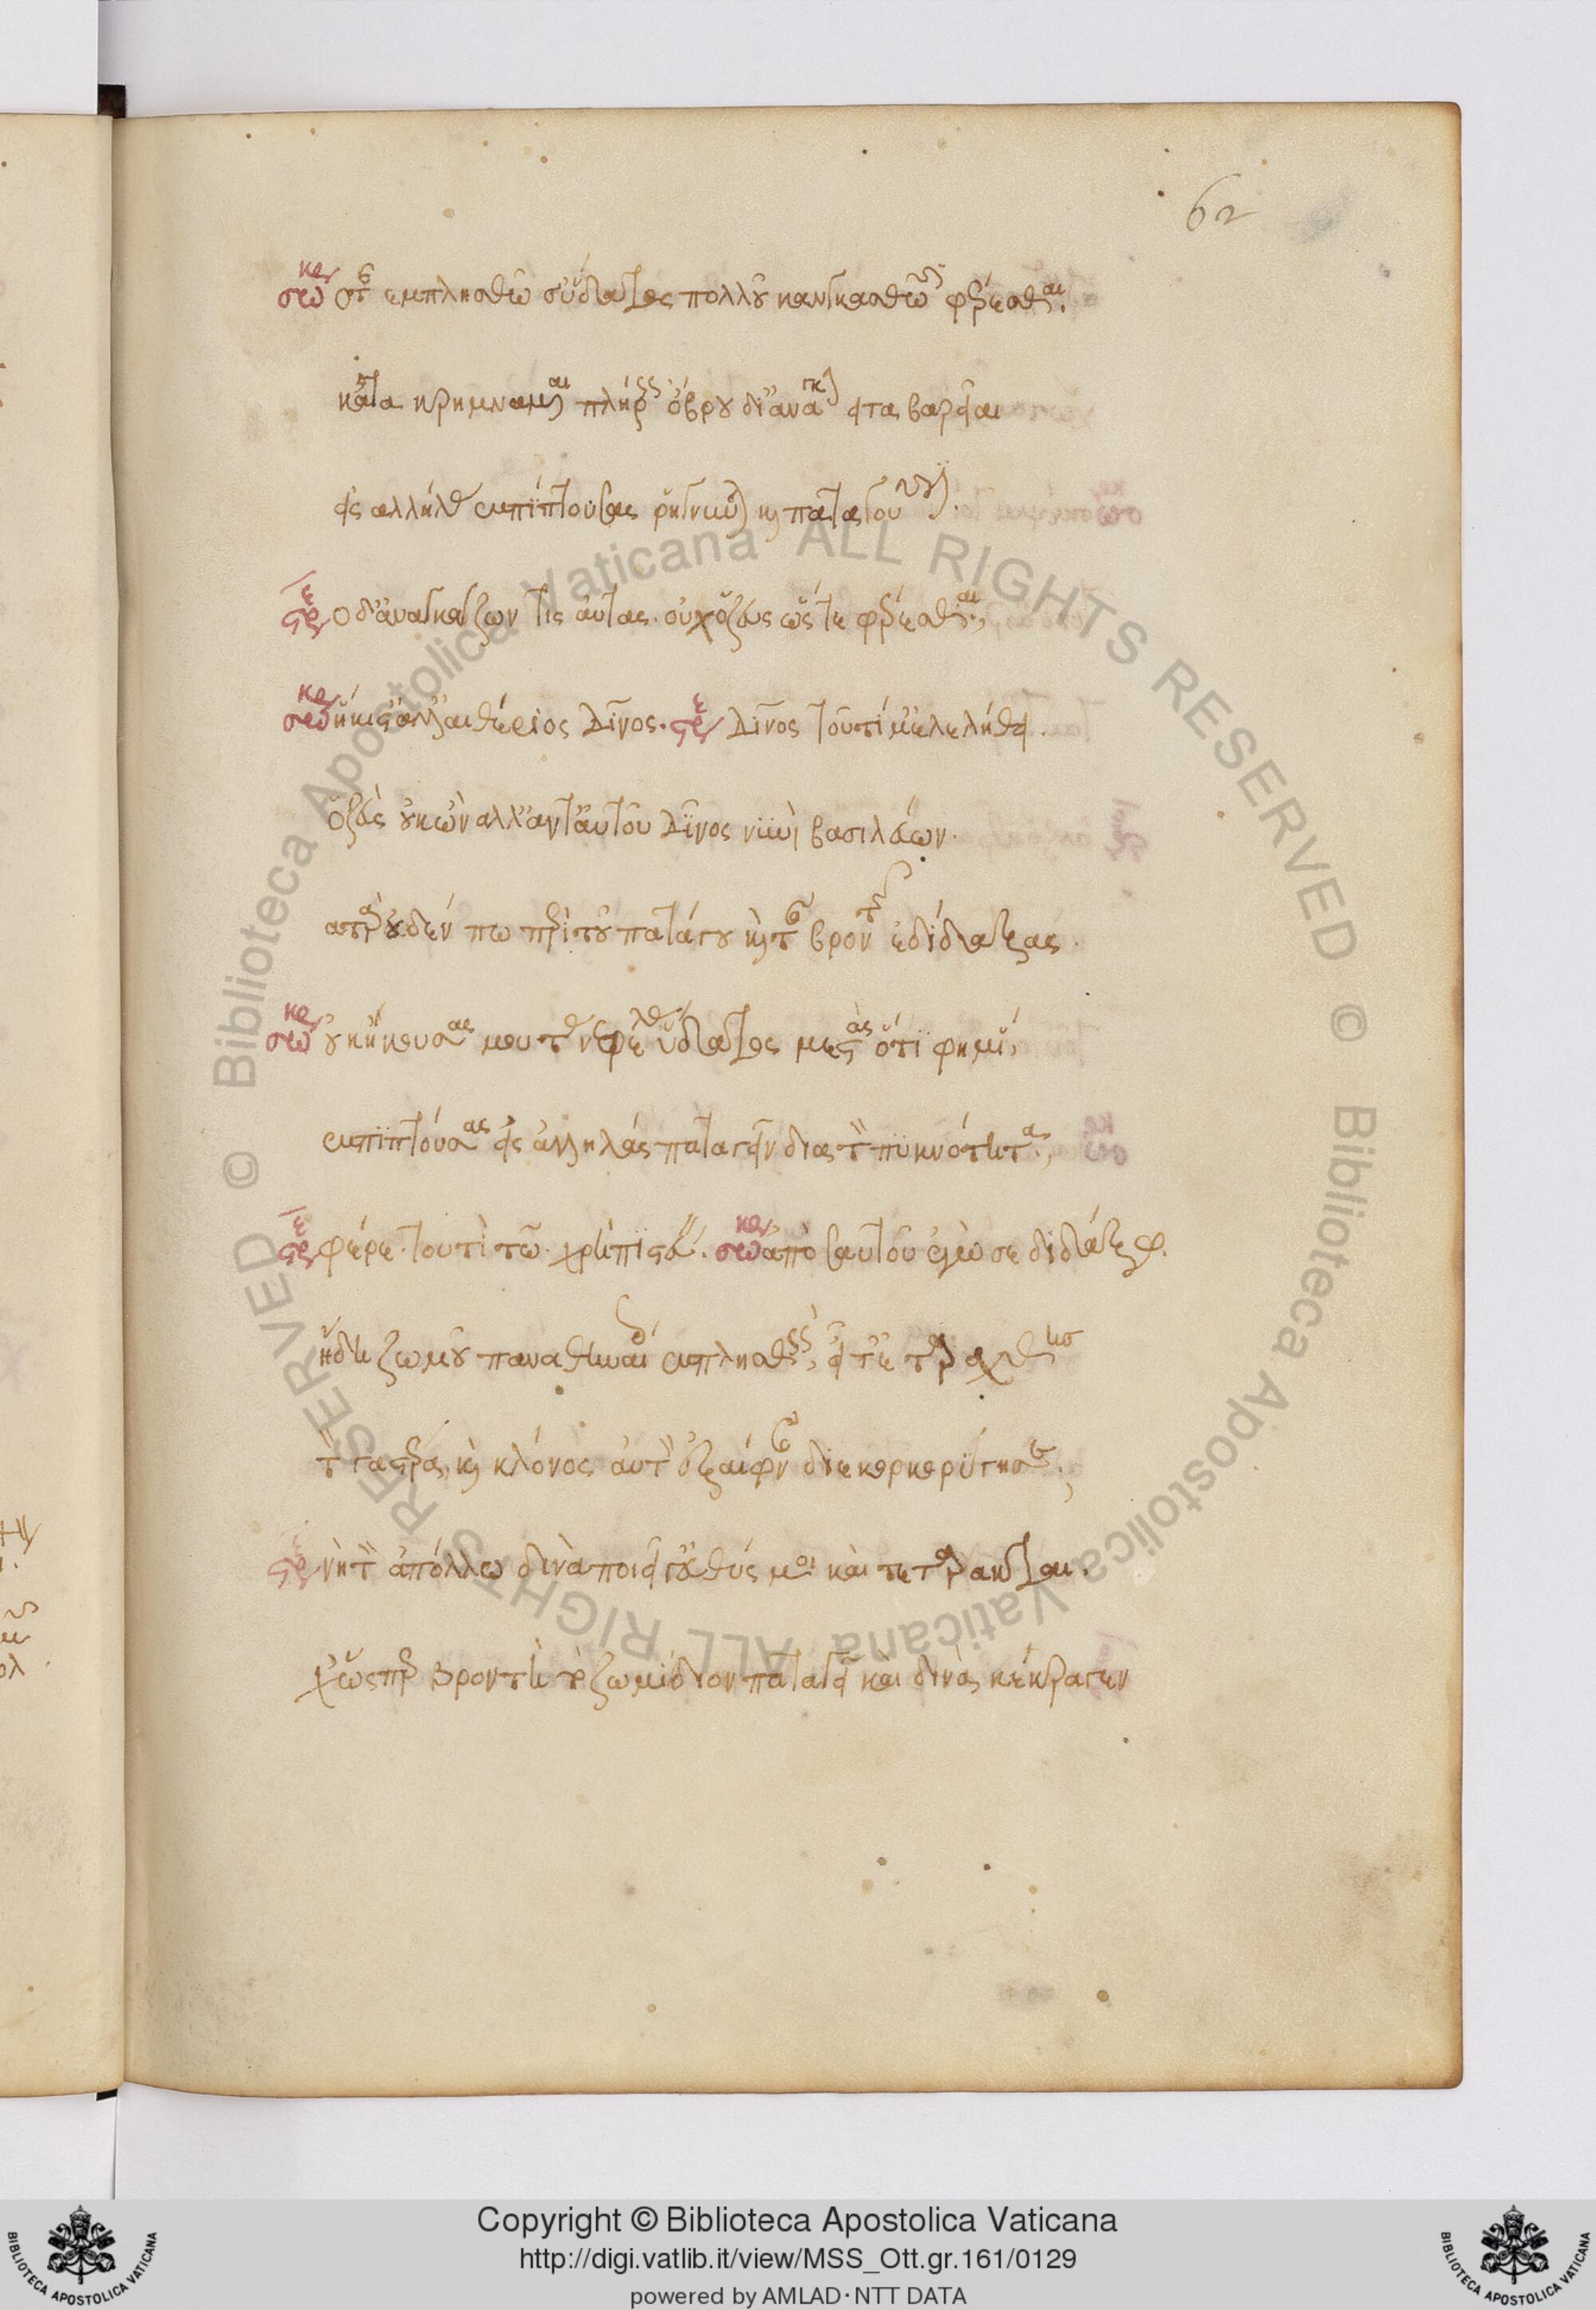 62
σωκρ ὅταν ἐμπλησθῶσ' ὕδατος πολλοῦ κἀναγκασθῶσι φέρεσθαι.
κατακρημνάμεναι πλήρεις ὄμβρου δι' ἀνάγκην εἶτα βαρεῖαι
εἰς ἀλλήλας ἐμπίπτουσαι ῥήγνυνται καὶ παταγοῦσιν.
στρε ὁ δ' ἀναγκάζων τίς αὐτὰς οὐχ ὁ ζεὺς ὥστε φέρεσθαι;
σωκρ ἥκιστ' ἀλλ' αἰθέριος δῖνος. στρε δῖνος τουτί μ' ἐλελήθει.
ὁ ζεὺς οὐκ ὢν ἀλλ' ἀντ' αὐτοῦ δῖνος νυνὶ βασιλεύων.
ἀτὰρ οὐδέν πω περὶ τοῦ πατάγου καὶ τῆς βροντῆς ἐδίδαξας
σωκρ οὐκ ἤκουσάς μου τὰς νεφέλας ὕδατος μεστὰς ὅτι φημὶ
ἐμπιπτούσας εἰς ἀλλήλας παταγεῖν διὰ τὴν πυκνότητα;
στρε φέρε τουτὶ τῷ χρὴ πιστεύειν. σωκρ ἀπὸ σαυτοῦ ἐγώ σε διδάξω.
ἤδη ζωμοῦ παναθηναίοις ἐμπλησθεὶς εἶτ' ἐταράχθης
τὴν γαστέρα, καὶ κλόνος αὐτὴν ἐξαίφνης διεκορκορύγησεν;
στρε νὴ τὸν ἀπόλλω δεινὰ ποιεῖ γ' εὐθύς μοι καὶ τετάρακται.
χ' ὥσπερ βροντὴ τὸ ζωμίδιον παταγεῖ καὶ δεινὰ κέκραγεν
Copyright © Biblioteca Apostolica Vaticana
http://digi.vatlib.it/view/MSS_Ott.gr.161/0129
powered by AMLAD·NTT DATA
© Biblioteca Apostolica Vaticana ALL RIGHTS RESERVED
© Biblioteca Apostolica Vaticana ALL RIGHTS RESERVED
BIBLIOTECA APOSTOLICA VATICANA
BIBLIOTECA APOSTOLICA VATICANA